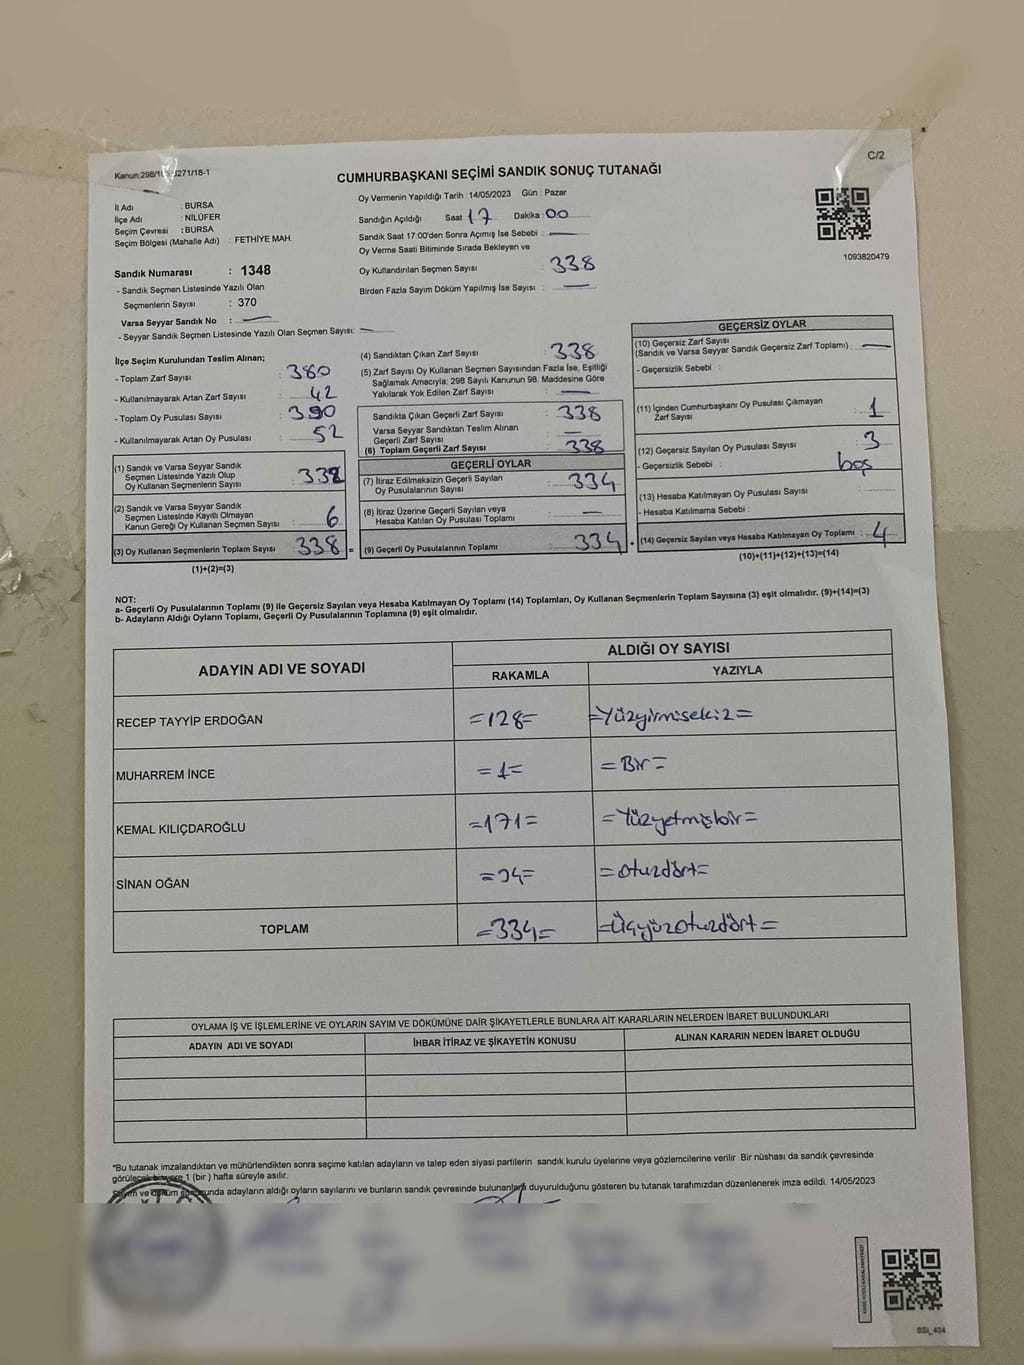 Kanun:298/105-5271/18-1
CUMHURBAŞKANI SEÇİMİ SANDIK SONUÇ TUTANAĞI
C/2
Oy Vermenin Yapıldığı Tarih : 14/05/2023 Gün : Pazar
İl Adı : BURSA
İlçe Adı : NİLÜFER
Seçim Çevresi : BURSA
Seçim Bölgesi (Mahalle Adı) : FETHİYE MAH.
Sandığın Açıldığı Saat 17 Dakika : 00
Sandık Saat 17:00'den Sonra Açımış İse Sebebi : —
Oy Verme Saati Bitiminde Sırada Bekleyen ve
Oy Kullandırılan Seçmen Sayısı : 338
Birden Fazla Sayım Döküm Yapılmış İse Sayısı : —
1093820479
Sandık Numarası : 1348
- Sandık Seçmen Listesinde Yazılı Olan
Seçmenlerin Sayısı : 370
Varsa Seyyar Sandık No : —
- Seyyar Sandık Seçmen Listesinde Yazılı Olan Seçmen Sayısı: —
İlçe Seçim Kurulundan Teslim Alınan;
- Toplam Zarf Sayısı : 380
- Kullanılmayarak Artan Zarf Sayısı : 42
- Toplam Oy Pusulası Sayısı : 390
- Kullanılmayarak Artan Oy Pusulası : 52
(1) Sandık ve Varsa Seyyar Sandık
Seçmen Listesinde Yazılı Olup
Oy Kullanan Seçmenlerin Sayısı :
(2) Sandık ve Varsa Seyyar Sandık
Seçmen Listesinde Kayıtlı Olmayan
Kanun Gereği Oy Kullanan Seçmen Sayısı : 6
(3) Oy Kullanan Seçmenlerin Toplam Sayısı : 338 =
(1)+(2)=(3)
(4) Sandıktan Çıkan Zarf Sayısı : 338
(5) Zarf Sayısı Oy Kullanan Seçmen Sayısından Fazla İse, Eşitliği
Sağlamak Amacıyla; 298 Sayılı Kanunun 98. Maddesine Göre
Yakılarak Yok Edilen Zarf Sayısı : —
Sandıkta Çıkan Geçerli Zarf Sayısı : 338
Varsa Seyyar Sandıktan Teslim Alınan
Geçerli Zarf Sayısı : —
(6) Toplam Geçerli Zarf Sayısı : 338
GEÇERLİ OYLAR
(7) İtiraz Edilmeksizin Geçerli Sayılan
Oy Pusulalarının Sayısı : 334
(8) İtiraz Üzerine Geçerli Sayılan veya
Hesaba Katılan Oy Pusulası Toplamı : —
(9) Geçerli Oy Pusulalarının Toplamı : 334 +
GEÇERSİZ OYLAR
(10) Geçersiz Zarf Sayısı
(Sandık ve Varsa Seyyar Sandık Geçersiz Zarf Toplamı) : —
- Geçersizlik Sebebi :
(11) İçinden Cumhurbaşkanı Oy Pusulası Çıkmayan
Zarf Sayısı : 1
(12) Geçersiz Sayılan Oy Pusulası Sayısı : 3
- Geçersizlik Sebebi : boş
(13) Hesaba Katılmayan Oy Pusulası Sayısı :
- Hesaba Katılmama Sebebi :
(14) Geçersiz Sayılan veya Hesaba Katılmayan Oy Toplamı : 4
(10)+(11)+(12)+(13)=(14)
NOT:
a- Geçerli Oy Pusulalarının Toplamı (9) ile Geçersiz Sayılan veya Hesaba Katılmayan Oy Toplamı (14) Toplamları, Oy Kullanan Seçmenlerin Toplam Sayısına (3) eşit olmalıdır. (9)+(14)=(3)
b- Adayların Aldığı Oyların Toplamı, Geçerli Oy Pusulalarının Toplamına (9) eşit olmalıdır.
ADAYIN ADI VE SOYADI
ALDIĞI OY SAYISI
RAKAMLA YAZIYLA
RECEP TAYYİP ERDOĞAN =128= =Yüzyirmisekiz=
MUHARREM İNCE =1= =Bir=
KEMAL KILIÇDAROĞLU =171= =Yüzyetmişbir=
SİNAN OĞAN =34= =Otuzdört=
TOPLAM =334= =Üçyüzotuzdört=
OYLAMA İŞ VE İŞLEMLERİNE VE OYLARIN SAYIM VE DÖKÜMÜNE DAİR ŞİKAYETLERLE BUNLARA AİT KARARLARIN NELERDEN İBARET BULUNDUKLARI
ADAYIN ADI VE SOYADI İHBAR İTİRAZ VE ŞİKAYETİN KONUSU ALINAN KARARIN NEDEN İBARET OLDUĞU
*Bu tutanak imzalandıktan ve mühürlendikten sonra seçime katılan adayların ve talep eden siyasi partilerin sandık kurulu üyelerine veya gözlemcilerine verilir .Bir nüshası da sandık çevresinde
görülecek bir yere 1 (bir ) hafta süreyle asılır.
Sayım ve döküm sonucunda adayların aldığı oyların sayılarını ve bunların sandık çevresinde bulunanlara duyurulduğunu gösteren bu tutanak tarafımızdan düzenlenerek imza edildi. 14/05/2023
SSI_404